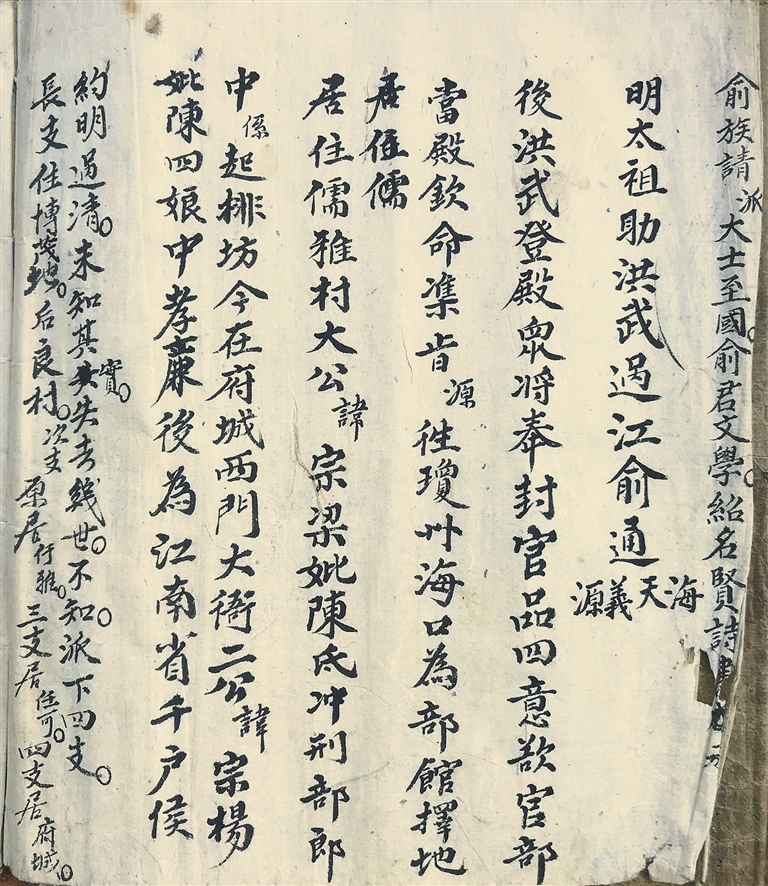 俞族請派大士至國俞君文學紹名賢詩
明太祖助洪武過江俞通海天義源
後洪武登殿眾将奉封官品四意欲官部
當殿欽命準旨源往瓊州海口為部館擇地
居住儒
居住儒雅村大公諱宗梁妣陳氏冲刑部郎
中係起排坊今在府城西門大衙二公諱宗楊
妣陳四娘中孝廉後為江南省千户侯
約明過清未知其實失去幾世不知派下四支
長支住博茂地后良村次支原居行雅三支居住可四支居府城